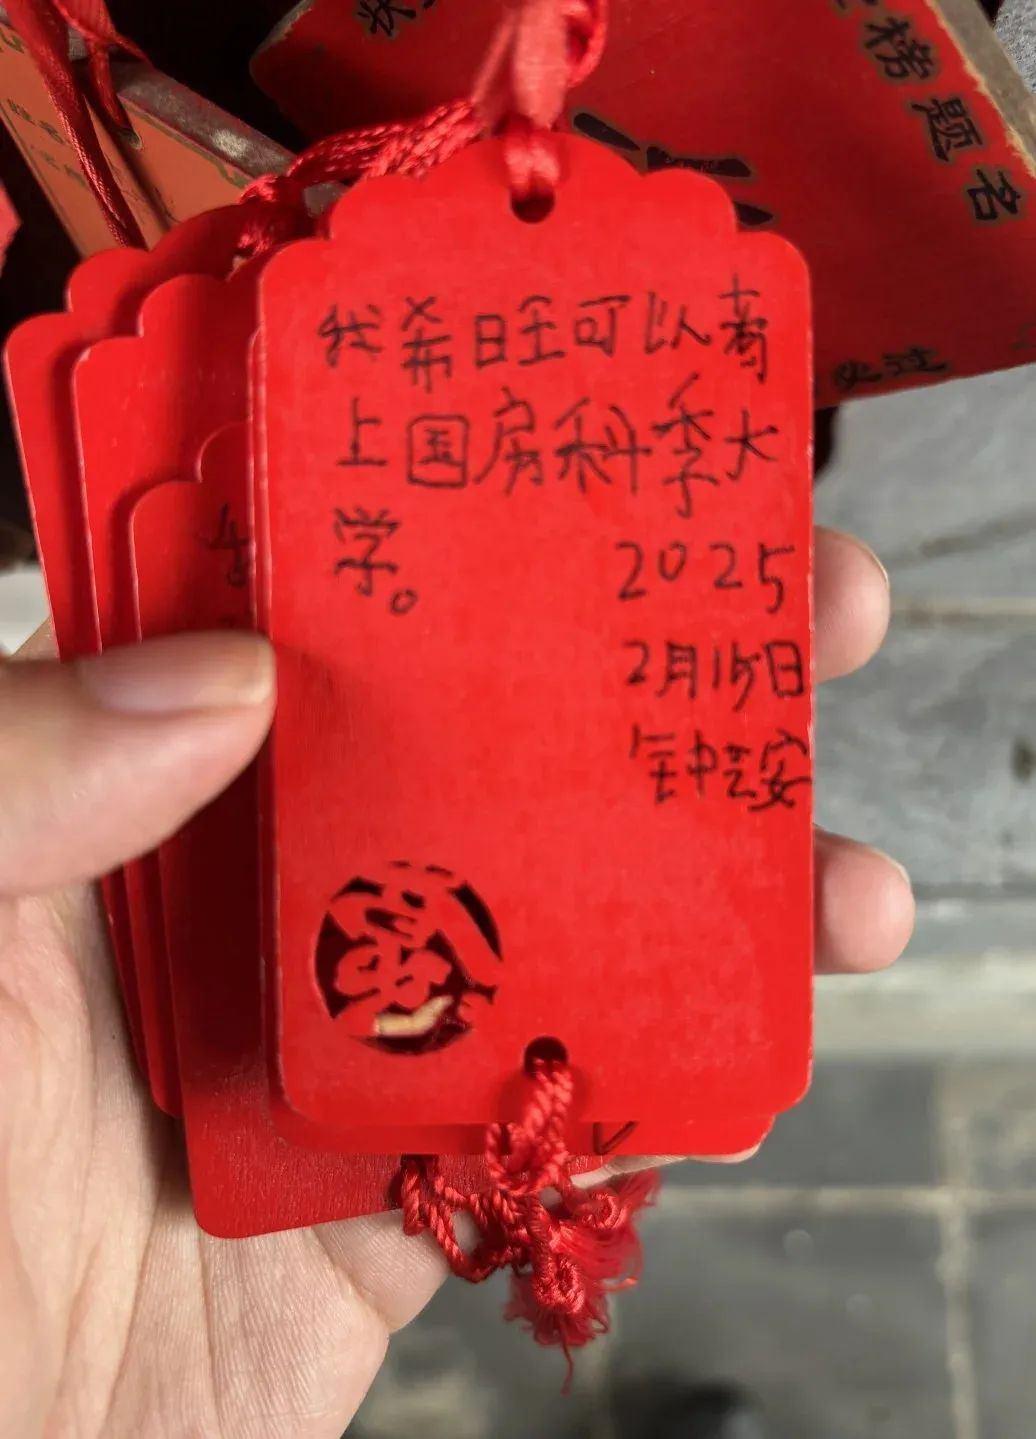 榜题名
我希旺可以考
上国房科季大
学。
2025
2月15日
钟芸安